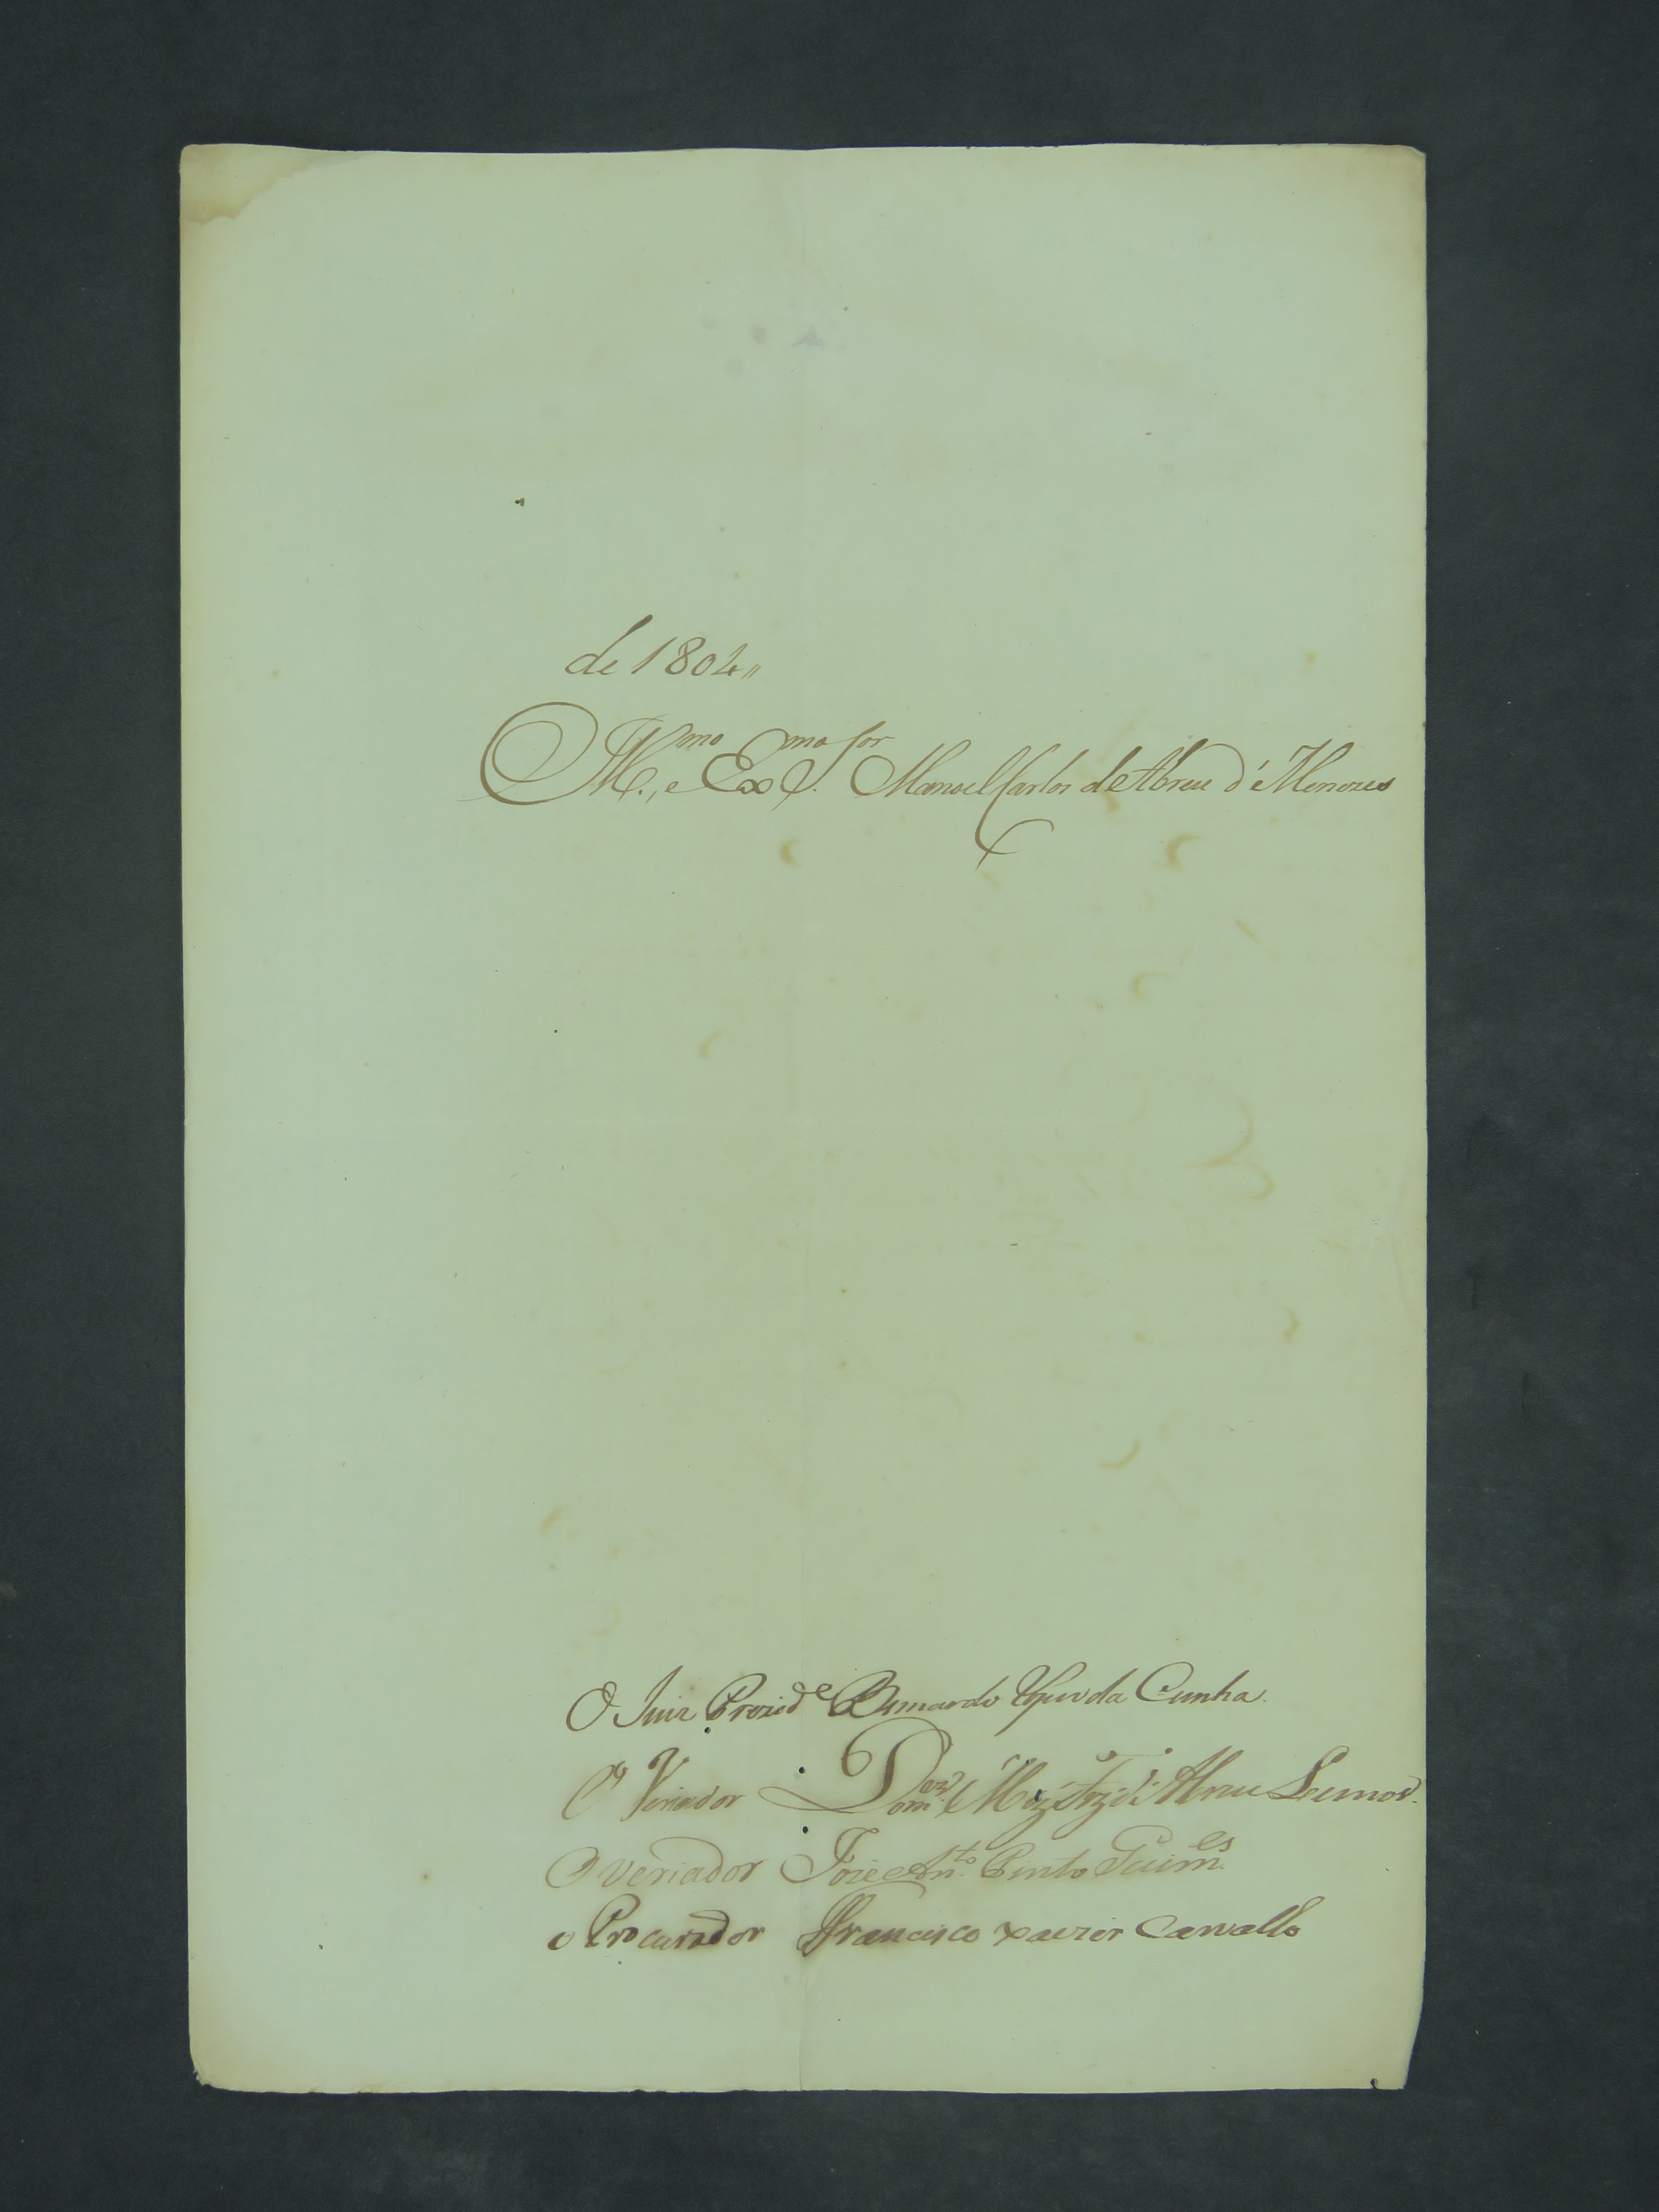 de 1804,,
Ill.mo, e Ex.mo Sor. Manoel Carlos de Abreu d'e Menezes
O Juiz Prezid.e Bernardo da Cunha.
O Veriador Dom.os Abreu Lemos.
O Veriador Joze Ant.o Pinto Guim.es
o Procurador Francisco xavier Carvalho